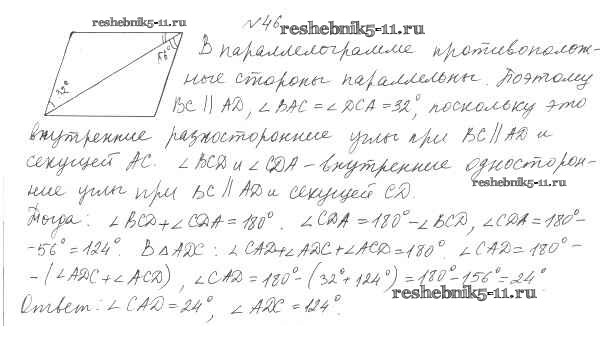 reshebnik5-11.ru
№46
reshebnik5-11.ru
32°
56°
В параллелограмме противополож-
ные стороны параллельны. Поэтому
BC || AD, ∠BAC = ∠DCA = 32°, поскольку это
внутренние разносторонние углы при BC || AD и
секущей AC. ∠BCD и ∠CDA – внутренние односторон-
reshebnik5-11.ru
ние углы при BC || AD и секущей CD.
Тогда: ∠BCD + ∠CDA = 180°. ∠CDA = 180° - ∠BCD, ∠CDA = 180° -
- 56° = 124°. В △ADC: ∠CAD + ∠ADC + ∠ACD = 180°. ∠CAD = 180° -
- (∠ADC + ∠ACD), ∠CAD = 180° - (32° + 124°) = 180° - 156° = 24°.
reshebnik5-11.ru
Ответ: ∠CAD = 24°, ∠ADC = 124°.